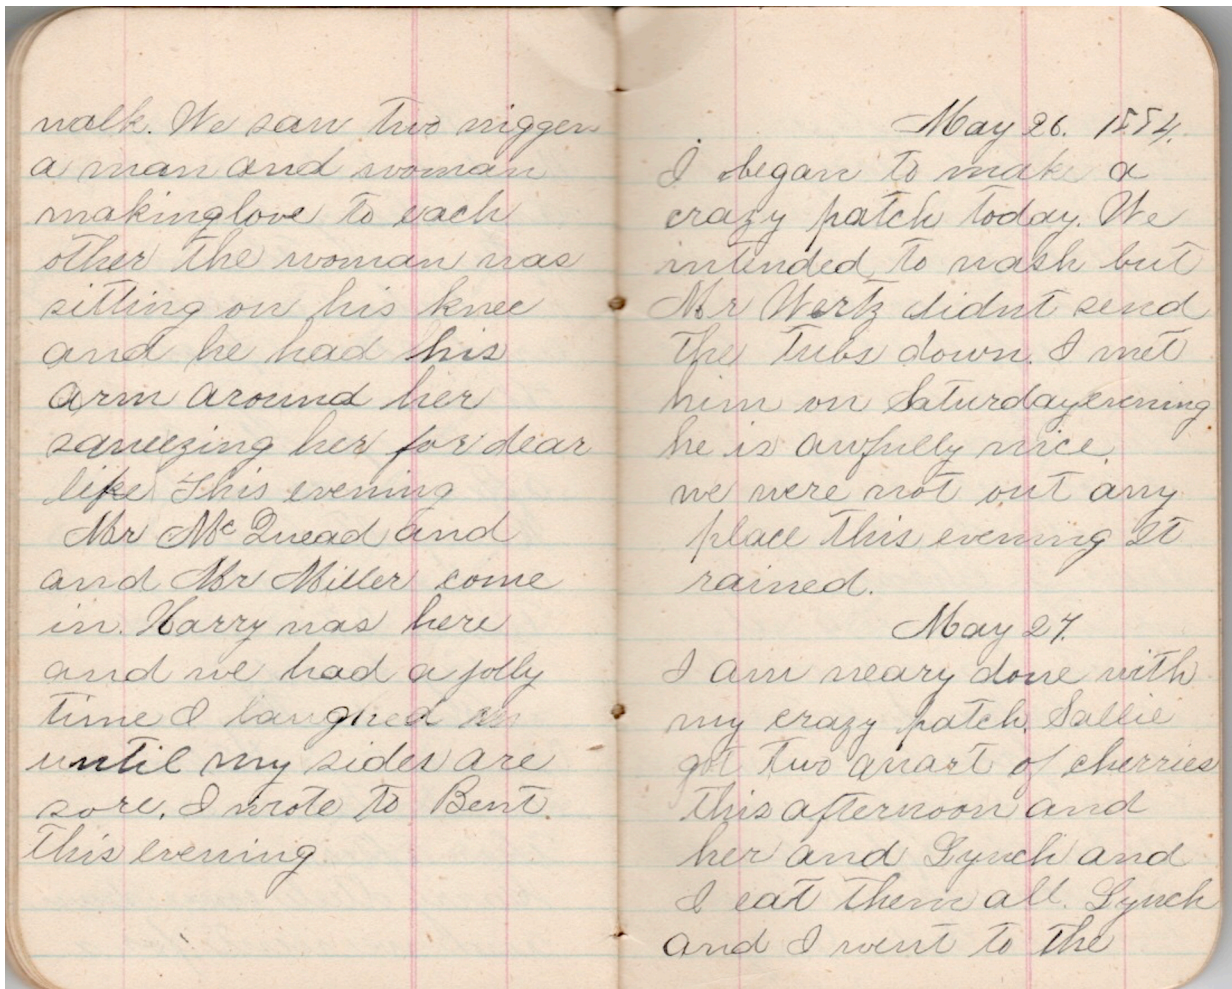 walk. We saw two nigger
a man and woman
makinglove to each
other the woman was
sitting on his knee
and he had his
arm around her
squeezing her for dear
life This evening
Mr McQuead and
and Mr Miller come
in. Harry was here
and we had a jolly
time I laughed
until my sides are
sore. I wrote to Bent
this evening
May 26. 1884.
I began to make a
crazy patch today. We
intended to wash but
Mr Wertz didnt send
the tubs down. I met
him on Saturdayevening
he is awfully nice
we were not out any
place this evening It
rained.
May 27.
I am neary done with
my crazy patch. Sallie
got two quart of cherries
this afternoon and
her and Lynch and
I eat them all. Lynch
and I went to the